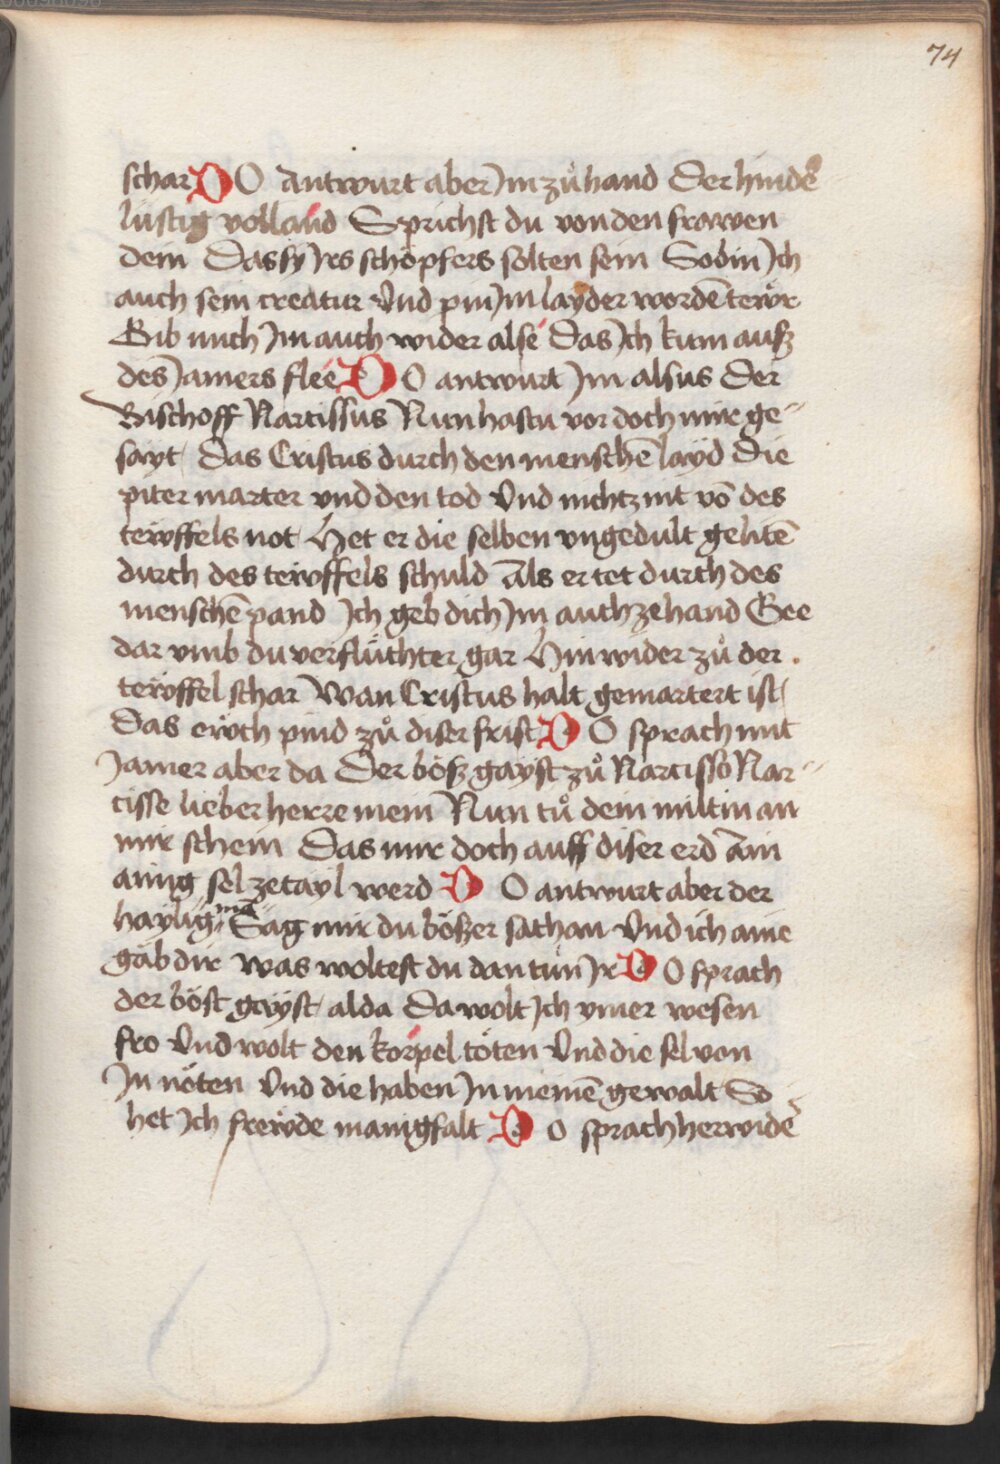 74
schar DO antwurt aber Im zů hand Der hinder
lustig volland Sprichst du von den frawen
dein Das sy Irs schöpfers solten sein So bin Ich
auch sein creatur Vnd pin Im layder wordē tewr
Gib mich Im auch wider alse Das Ich kum ausz
des Jamers flee DO antwurt Im alsus Der
Bischoff Narcissus Nun hastu vor doch mir ge-
sayt Das Cristus durch den menschē layd Die
piter marter vnd den tod Vnd nichtz nit vō des
tewffels not Het er die selben vngedult gelitē
durch des tewffels schuld Als er tet durch des
menschē pand Ich geb dich Im auch zehand Gee
dar vmb du verflüchter gar Hin wider zů der
tewffel schar Wan Cristus halt gemartert ist
Das ewch pind zů diser frist DO sprach mit
Jamer aber da Der bösz gayst zů Narcisso Nar-
cisse lieber herre mein Nun tů dein miltin an
mir schein Das mir doch auff diser erd Ain
ainig sel ze tayl werd DO antwurt aber der
haylig mā Sag mir du böszer sathan Vnd ich aine
gäb dir was woltest du dan tun Ir DO sprach
der böst gayst alda Da wolt Ich ymer wesen
fro Vnd wolt den korpel töten Vnd die sel von
In nöten Vnd die haben In meinē gewalt So
het Ich frewde manigfalt DO sprach herwidē